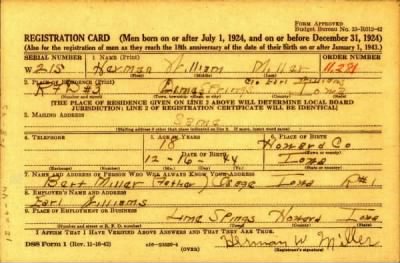 FORM APPROVED
Budget Bureau No. 33-R012-42
REGISTRATION CARD (Men born on or after July 1, 1924, and on or before December 31, 1924)
(Also for the registration of men as they reach the 18th anniversary of the date of their birth on or after January 1, 1943.)
SERIAL NUMBER 1. NAME (Print) ORDER NUMBER
W 215 Herman William Miller
(First) (Middle) (Last)
2. PLACE OF RESIDENCE (Print)
RFD #3 Iowa
(Number and street) (State)
[THE PLACE OF RESIDENCE GIVEN ON LINE 2 ABOVE WILL DETERMINE LOCAL BOARD
JURISDICTION; LINE 2 OF REGISTRATION CERTIFICATE WILL BE IDENTICAL]
3. MAILING ADDRESS
Same
(Mailing address if other than place indicated on line 2. If same, insert word same)
4. TELEPHONE 5. AGE IN YEARS 6. PLACE OF BIRTH
18 Howard Co
DATE OF BIRTH (Town or county)
12 - 16 - Iowa
(Mo.) (Day) (Yr.) (State or country)
7. NAME AND ADDRESS OF PERSON WHO WILL ALWAYS KNOW YOUR ADDRESS
Bert Miller (father) Osage Iowa R#1
8. EMPLOYER'S NAME AND ADDRESS
Earl Williams
9. PLACE OF EMPLOYMENT OR BUSINESS
Lime Springs Howard Iowa
(Number and street or R. F. D. number) (Town) (County) (State)
I AFFIRM THAT I HAVE VERIFIED ABOVE ANSWERS AND THAT THEY ARE TRUE.
DSS Form 1 (Rev. 11-16-42) (OVER) Herman W. Miller
(Registrant's signature)